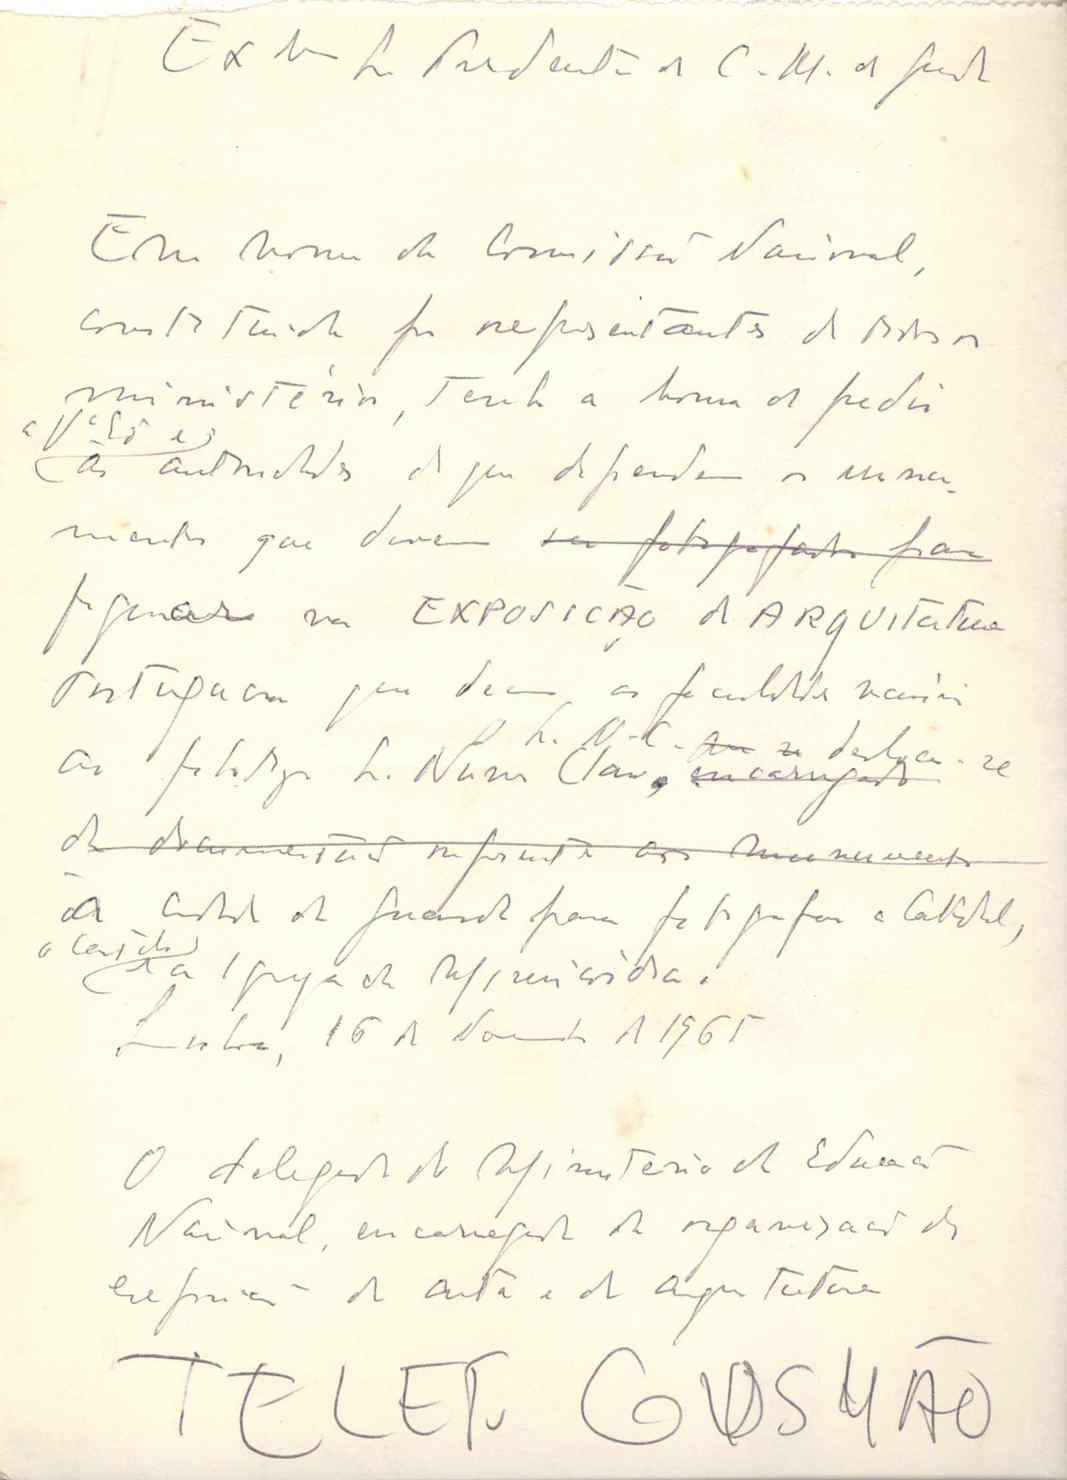 Ex mo Sr Presidente da C. M. da Guarda
Em nome da Comissão Nacional,
constituida por representantes de todos os
ministérios, tenho a honra de pedir
a V. Exª e
às autoridades de que dependem os monu-
mentos que devem ser fotografados para
figurar na EXPOSIÇÃO de ARQUITectura
Portuguesa que deem as facilidades necessárias
Sr. N. C. que se desloca-se
ao fotógrafo Sr. Nuno Calvo, encarregado
da documentação referente aos monumentos
à cidade da Guarda para fotografar a Catedral,
e a Igreja da Misericórdia.
Lisboa, 16 de Novembro de 1965
O delegado do Ministério da Educação
Nacional, encarregado da organização das
exposições de arte e de arquitectura
TELEF. GUSMÃO